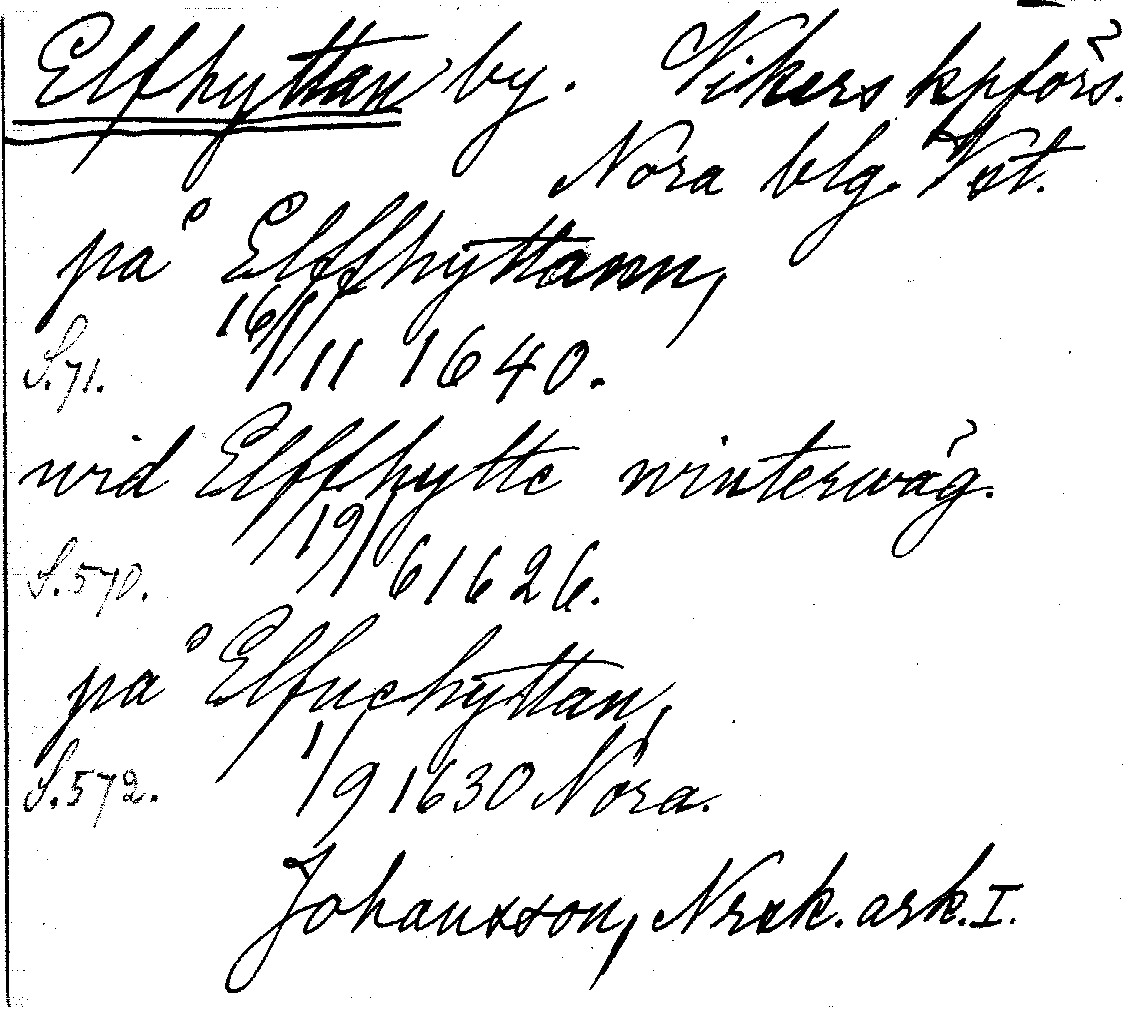 Elfhyttan by. Vikers kpförs.
Nora blg. Vst.
på Elffhyttann,
S. 71. 16/11 1640.
wid Elffhytte winterwäg.
S. 570. 19/6 1626.
på Elfuehyttan,
S. 572. 1/9 1630 Nora.
Johansson, Nrsk. ark. I.